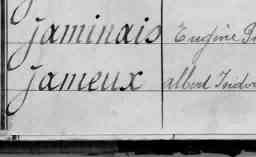 Jaminais Eugène
Jameux Albert